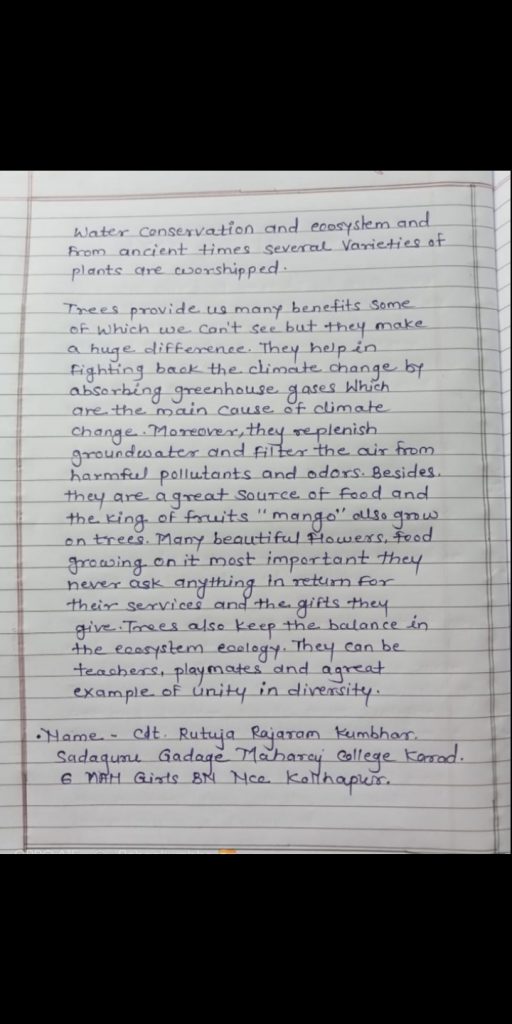 Water conservation and ecosystem and
from ancient times several varieties of
plants are worshipped.
Trees provide us many benefits some
of which we can't see but they make
a huge difference. They help in
fighting back the climate change by
absorbing greenhouse gases which
are the main cause of climate
change. Moreover, they replenish
groundwater and filter the air from
harmful pollutants and odors. Besides.
they are a great source of food and
the king of fruits "mango" also grow
on trees. Many beautiful flowers, food
growing on it most important they
never ask anything in return for
their services and the gifts they
give. Trees also keep the balance in
the ecosystem ecology. They can be
teachers, playmates and a great
example of unity in diversity.
• Name - Cdt. Rutuja Rajaram Kumbhar.
Sadaguru Gadage Maharaj College Karad.
6 MAH Girls BN Ncc Kolhapur.